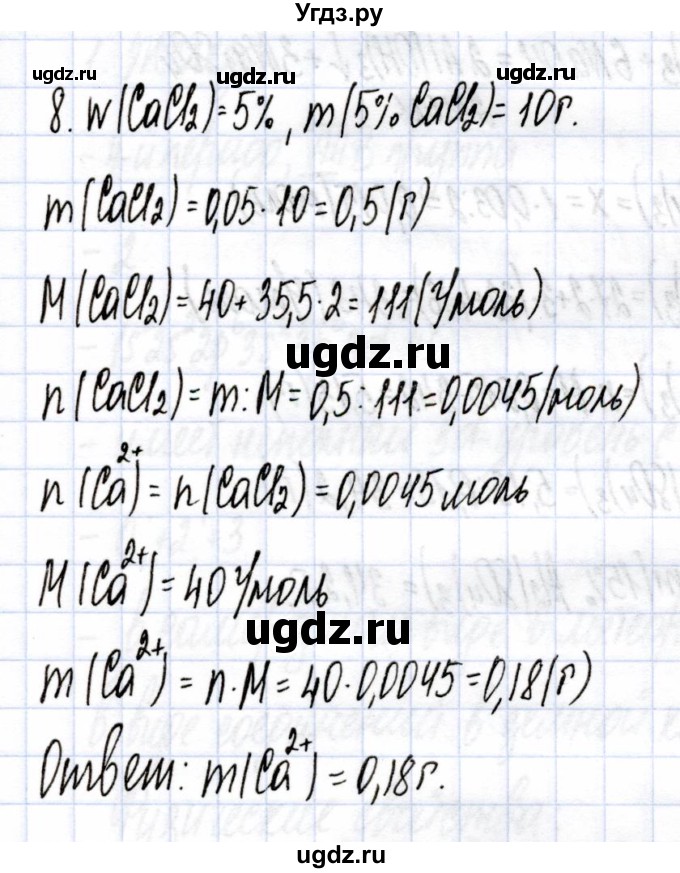 Угдз.ру
ugdz.ru ugdz.ru ugdz.ru
8. w(CaCl₂)=5%, m(5% CaCl₂)=10г.
m(CaCl₂)=0,05·10=0,5(г)
M(CaCl₂)=40+35,5·2=111(г/моль)
ugdz.ru
n(CaCl₂)=m:M=0,5:111=0,0045(моль)
n(Ca²⁺)=n(CaCl₂)=0,0045моль
M(Ca²⁺)=40г/моль
ugdz.ru
m(Ca²⁺)=n·M=40·0,0045=0,18(г)
Ответ: m(Ca²⁺)=0,18г.
ugdz.ru ugdz.ru
ugdz.ru